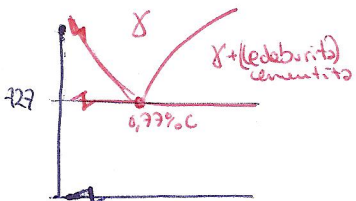 γ
γ+(ledeburita)
cementita
727
0,77%C